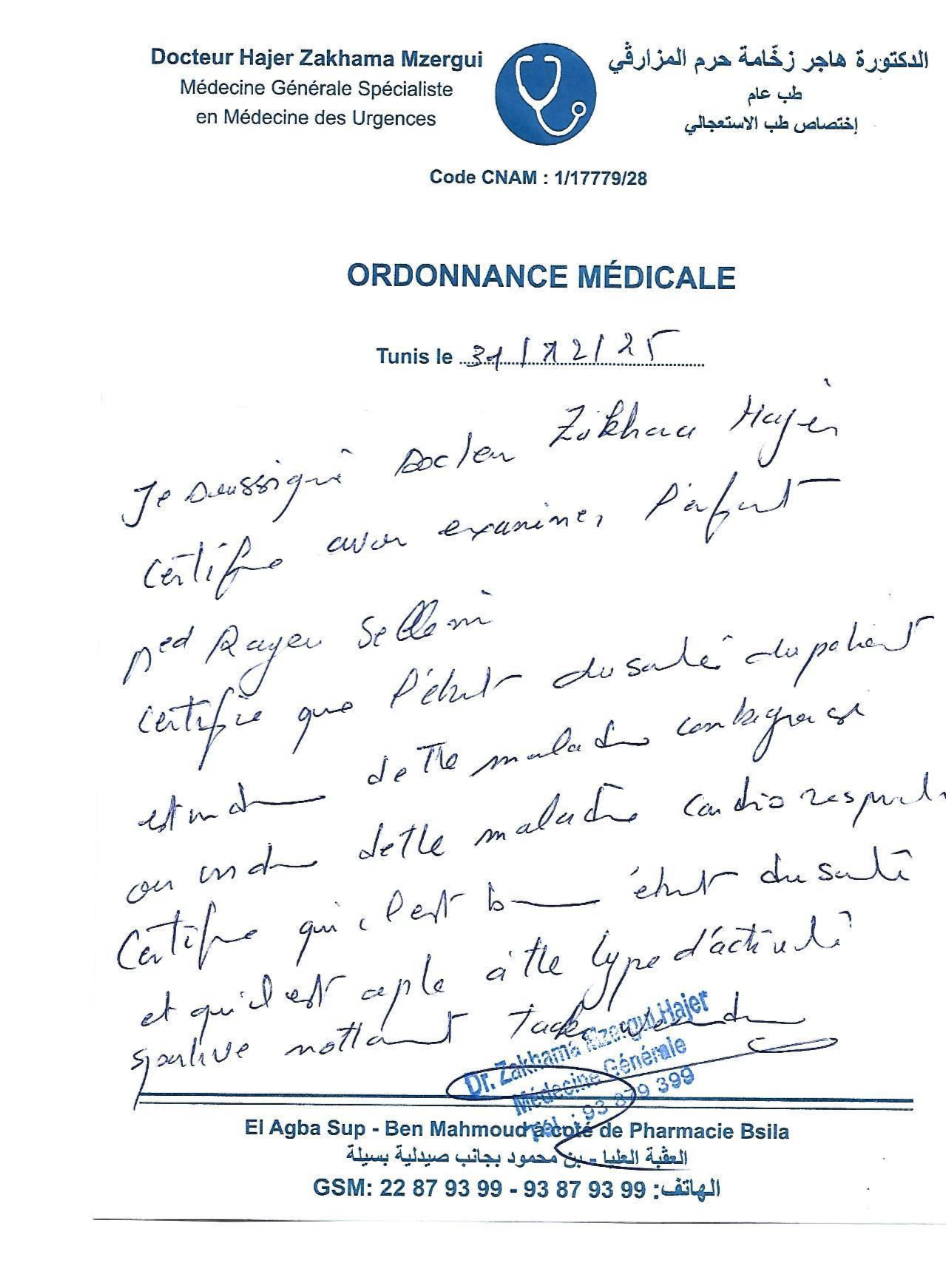 Docteur Hajer Zakhama Mzergui
Médecine Générale Spécialiste
en Médecine des Urgences
الدكتورة هاجر زخّامة حرم المزارڤي
طب عام
إختصاص طب الاستعجالي
Code CNAM : 1/17779/28
ORDONNANCE MÉDICALE
Tunis le 31/12/25
Je soussigné Docteur Zakhama Hajer
certifie avoir examiner l'enfant
Med Rayen Sellemi
certifie que l'état du santé du patient
est de tte maladie contagieuse
ou de tte maladie cardio respirat
Certifie qu'il est état du santé
et qu'il est apte à tte type d'activité
sportive
Dr. Zakhama Mzergui Hajer
Médecine Générale
Tél : 93 879 399
El Agba Sup - Ben Mahmoud à coté de Pharmacie Bsila
العقبة العليا - بن محمود بجانب صيدلية بسيلة
GSM: 22 87 93 99 - 93 87 93 99 :الهاتف